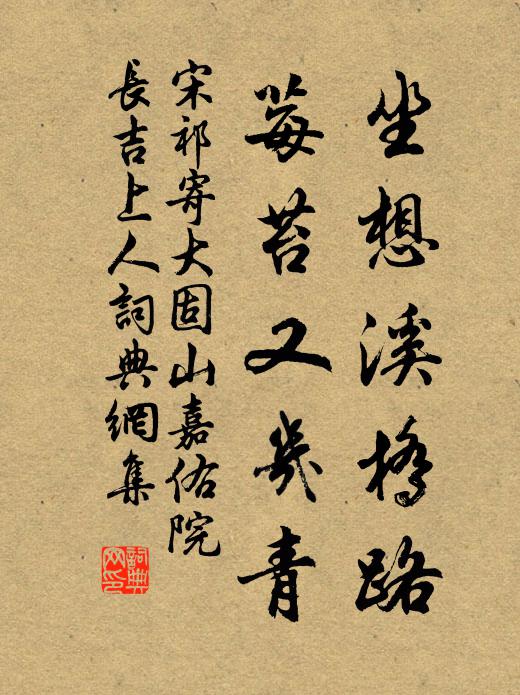 坐想溪橋路
莓苔又幾青
宋祁寄大固山嘉佑院
長吉上人詞典網集
詞典網印